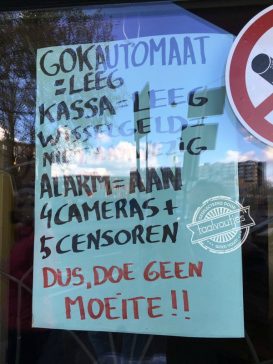 GOKAUTOMAAT
=LEEG
KASSA=LEEG
WISSELGELD=
NIET AANWEZIG
ALARM=AAN
4 CAMERAS+
5 CENSOREN
taalvoutjes
DUS, DOE GEEN
MOEITE!!